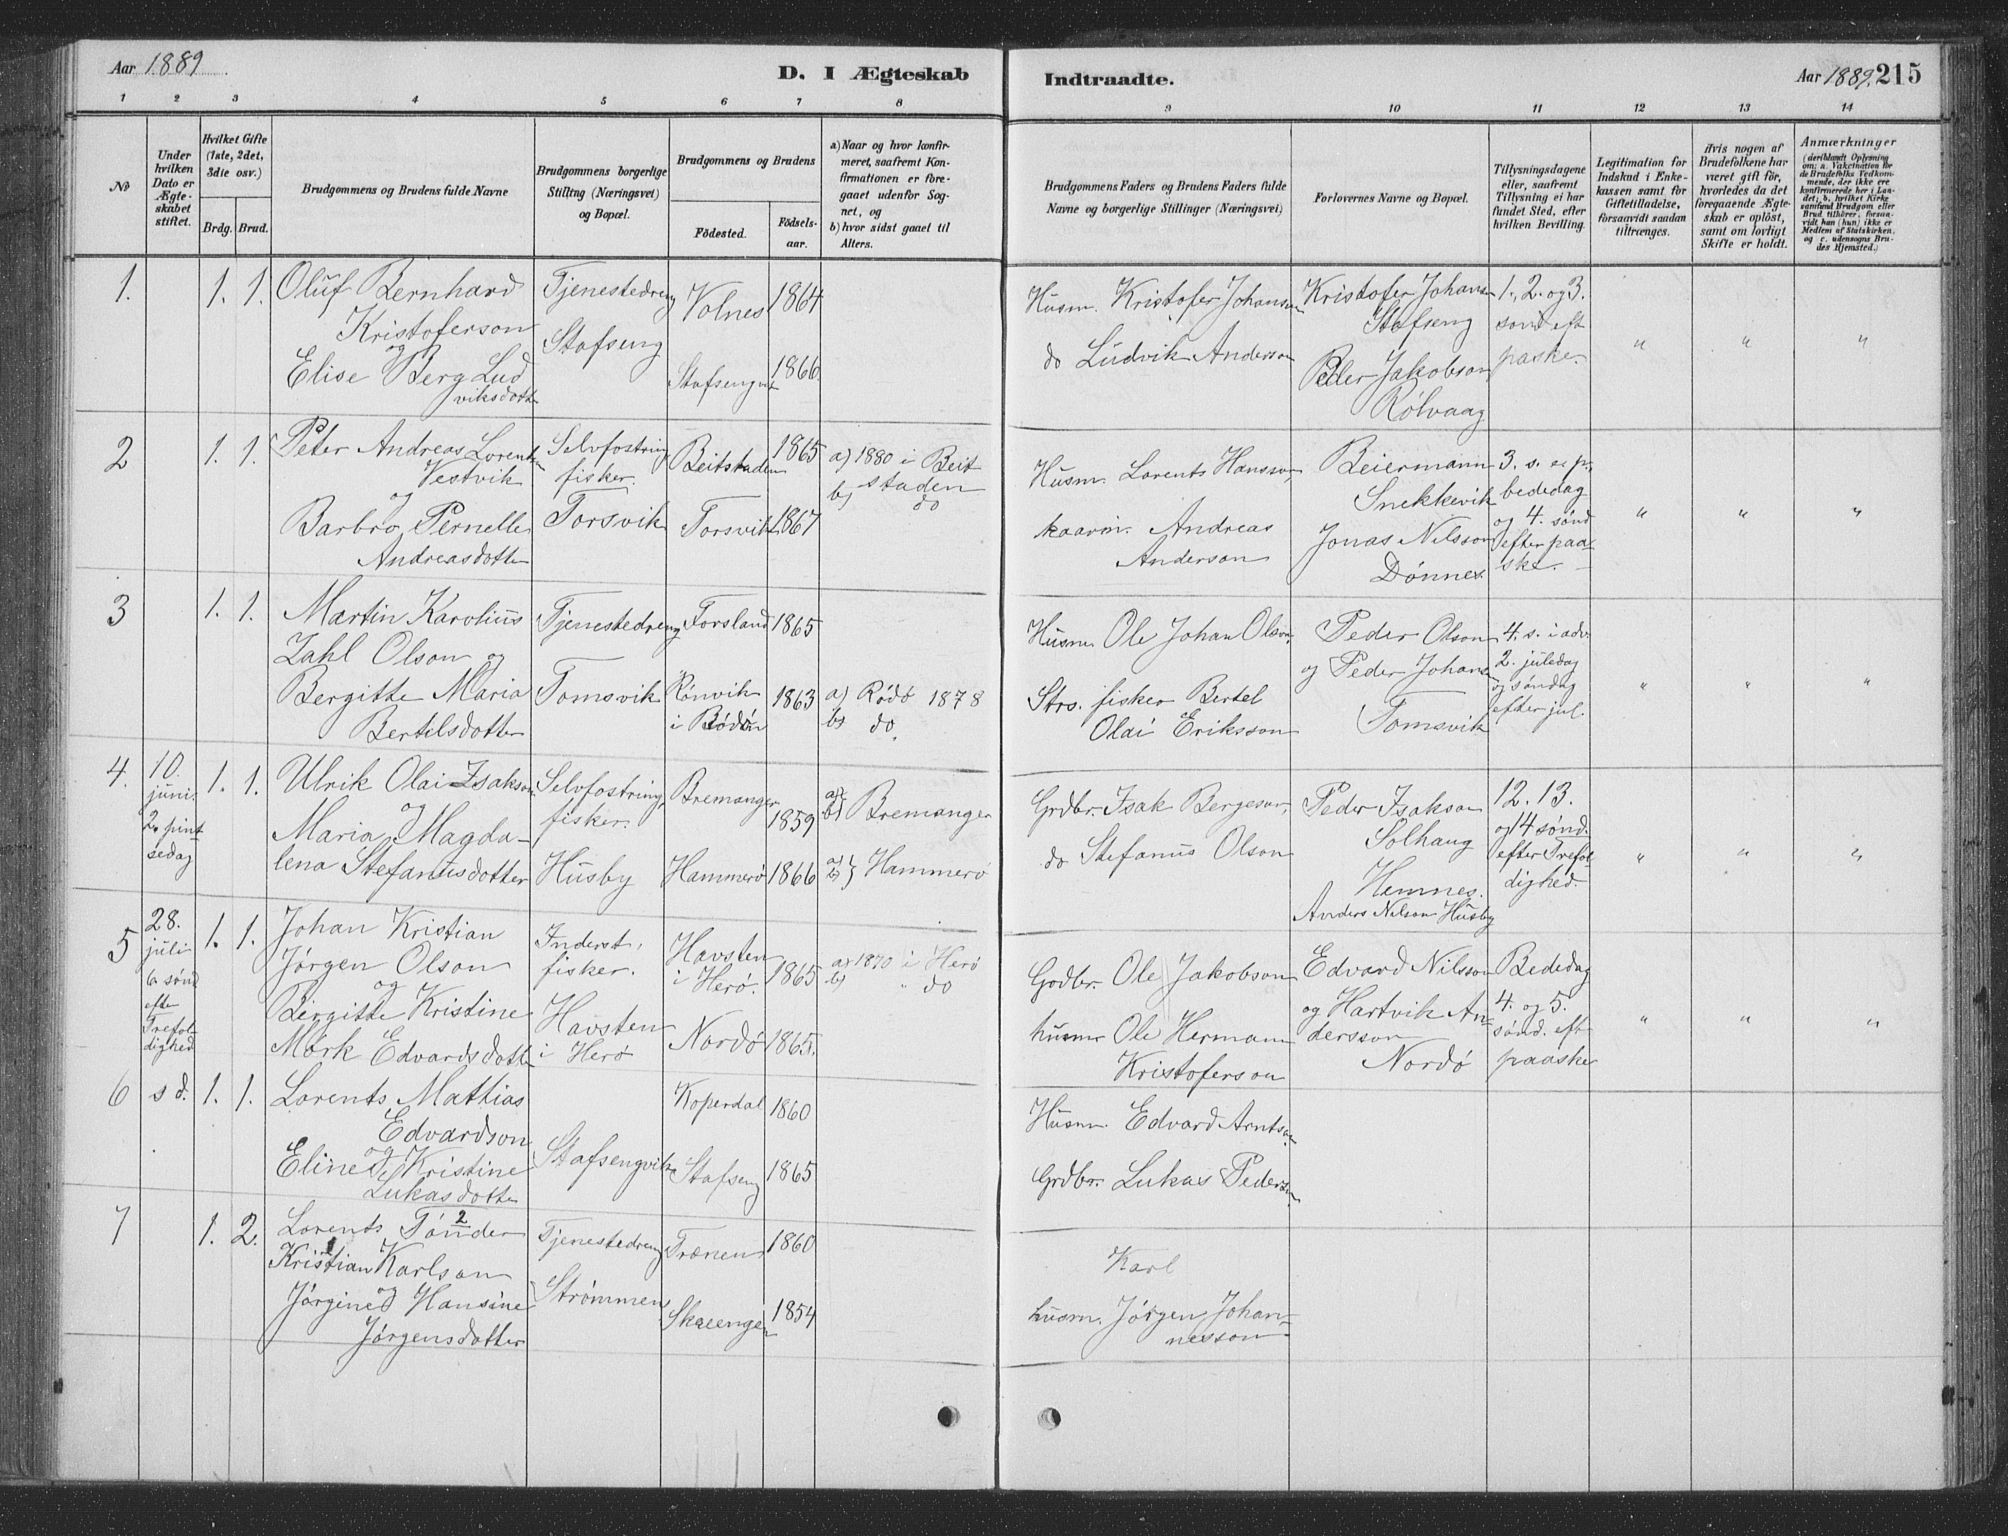 Aar 1889
D. I Ægteskab
Indtraadte.
Aar 1889. 215
1 2 3 4 5 6 7 8
9 10 11 12 13 14
No
Under hvilken Dato er Ægteskabet stiftet.
Hvilket Gifte (1ste, 2det, 3die osv.)
Brdg. Brud.
Brudgommens og Brudens fulde Navne
Brudgommens borgerlige Stilling (Næringsvei) og Bopæl.
Brudgommens og Brudens
Födested.
Födselsaar.
a) Naar og hvor konfirmeret, saafremt Konfirmationen er foregaaet udenfor Sognet, og
b) hvor sidst gaaet til Alters.
Brudgommens Faders og Brudens Faders fulde Navne og borgerlige Stillinger (Næringsvei)
Forlovernes Navne og Bopæl.
Tillysningsdagene eller, saafremt Tillysning ei har fundet Sted, efter hvilken Bevilling.
Legitimation for Indskud i Enkekassen samt for Giftetilladelse, forsaavidt saadan tiltrænges.
Hvis nogen af Brudefolkene har været gift för, hvorledes da det foregaaende Ægteskab er oplöst, samt om lovligt Skifte er holdt.
Anmærkninger
(deriblandt Oplysning om: a. Vakcination for de Brudefolks Vedkommende, der ikke ere konfirmerede her i Landet; b. hvilket Kirkesamfund Brudgom eller Brud tilhörer, forsaavidt han (hun) ikke er Medlem af Statskirken, og c. udensogns Brudes Hjemsted.)
1. 1. 1.
Oluf Bernhard
Kristoferson
og
Elise Berg Lud
viksdotte
Tjenestedreng
Stafseng
Volnes 1864
Stafsengvik 1866
Husm. Kristofer Johanson
do Ludvik Anderson
Kristofer Johanson
Stafseng
Peder Jakobson
Rølvaag
1., 2. og 3.
sønd eft
paaske.
" " "
2 1. 1.
Peter Andreas Lorentsen
Vestvik
og
Barbro Pernelle
Andreasdotte
Selvfostring,
fisker.
Forsvik
Beitstaden 1865
Forsvik 1867
a) 1880 i Beit
staden
b) do
Husm. Lorents Hansson,
kaarm. Andreas
Anderson
Beiermann
Snekkevik
Jonas Nilsson
Dønnes.
3. s. e. p.
bededag
og 4. sønd
efter paa-
ske.
" " "
3 1. 1.
Martin Karolius
Zahl Olson og
Bergitte Maria
Bertelsdotte
Tjenestedreng
Tomsvik
Forsland 1865
Rønvik
i Bodøn 1863
a) Rødø 1878
b) do.
Husm. Ole Johan Olson,
Strs. fisker Bertel
Olai Eriksson
Peder Olson
og Peder Johansen
Tomsvik
4. s. i adv.
2. juledag
og søndag
efter jul.
" " "
4. 10.
juni.
2. pint
sedag
1. 1.
Ulrik Olai Isakson
og
Maria Magda-
lena Stefanusdotter
Selvfostring,
fisker.
Husby
Bremanger
1859
Hammerø 1866
a)
b) Bremanger
a)
b) } Hammerø
Grdbr. Isak Bergeson,
do Stefanus Olson
Peder Isakson
Solhaug
Hemnes.
Anders Nilson Husby
12. 13.
og 14 sønd.
efter Trefol-
dighed.
" " "
5 28.
juli
6. sønd
efte
Trefol
dighed
1. 1.
Johan Kristian
Jørgen Olson
og
Birgitte Kristine
Mørk Edvardsdotte
Inderst,
fisker.
Havsten
i Herø
Havsten
i Herø. 1865
Nordø 1865.
a) 1870 i Herø
b) " do
Grdbr. Ole Jakobson
husm Ole Hermann
Kristoferson
Edvard Nilsson
og Hartvik An-
dersson
Nordø
Bededag
4. og 5.
sønd. eft
paaske
" " "
6 s d. 1. 1.
Lorents Mathias
Edvardson
og
Eline Kristine
Lukasdotte
Stafsengvik
Koperdal 1860
Stafseng 1865
Husm. Edvard Arntson.
Grdbr. Lukas Pederson
7 1. 2.
Lorents Tønder
Kristian Karlson
og
Jørgine Hansine
Jørgensdotter
Tjenestedreng
Strømmen
Trænen 1860
Skeengen 1854
Karl
husm. Jørgen Johan-
nesson